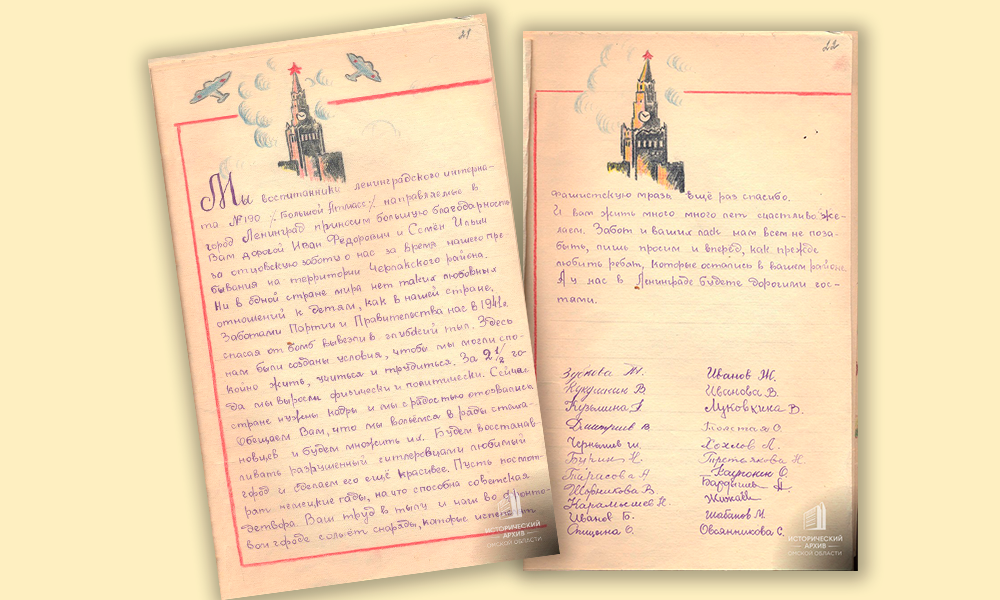 21
Мы воспитанники ленинградского интерна-
та №190 /. Большой Атмасс /. направляемые в
город Ленинград приносим большую благодарность
Вам дорогой Иван Федорович и Семён Ильич
за отцовскую заботу о нас за время нашего пре-
бывания на территории Черлакского района.
Ни в одной стране мира нет таких любовных
отношений к детям, как в нашей стране.
Заботами Партии и Правительства нас в 1941г
спасая от бомб вывезли в глубокий тыл. Здесь
нам были созданы условия, чтобы мы могли спо-
койно жить, учиться и трудиться. За 2 1/2 го-
да мы выросли физически и политически. Сейчас
стране нужны кадры и мы с радостью отозвались.
Обещаем Вам, что мы вольёмся в ряды стаха-
новцев и будем множить их. Будем восстанав-
ливать разрушенный гитлеровцами любимый
город и сделаем его ещё красивее. Пусть посмот-
рят немецкие гады, на что способна советская
детвора. Ваш труд в тылу и наш во фронто-
вом городе сольёт снаряды, которые
ИСТОРИЧЕСКИЙ
АРХИВ
ОМСКОЙ ОБЛАСТИ
22
фашистскую мразь. Ещё раз спасибо.
И вам жить много много лет счастливо же-
лаем. Забот и ваших ласк нам всем не поза-
быть, лишь просим и вперёд, как прежде
любить ребят, которые остались в вашем районе.
А у нас в Ленинграде будете дорогими гос-
тями.
Зубкова Н.
Кукушкин В.
Кузьмина А
Дмитриев В
Чернышев Ш.
Бучин Н.
Борисова А
Шорникова В.
Карамышев Н.
Иванов Б.
Спицына О.
Иванов Ж.
Иванова В.
Луковкина В.
Толстая О.
Хохлов Л.
Третьякова Н.
О.
А.
Шабанов М.
Овсянникова С.
ИСТОРИЧЕСКИЙ
АРХИВ
ОМСКОЙ ОБЛАСТИ